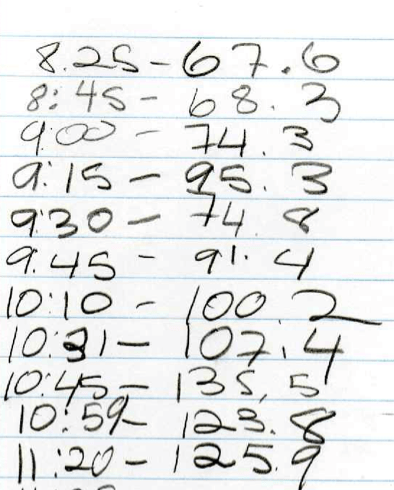 8.25 - 67.6
8:45 - 68.3
9:00 - 74.3
9:15 - 95.3
9:30 - 74.8
9.45 - 91.4
10:10 - 100.2
10:31 - 107.4
10:45 - 135,5
10:59 - 123.8
11:20 - 125.9